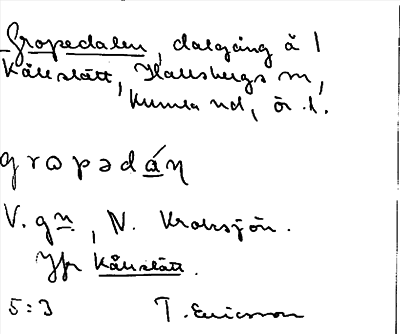 Gropedalen, dalgång å
Kålslätt, Hallsbergs sn,
Kumla hd, Ör. l.
gropədáṇ
V. gn, N. Kroksjön.
Jfr Kålslätt.
5:3 T. Ericsson